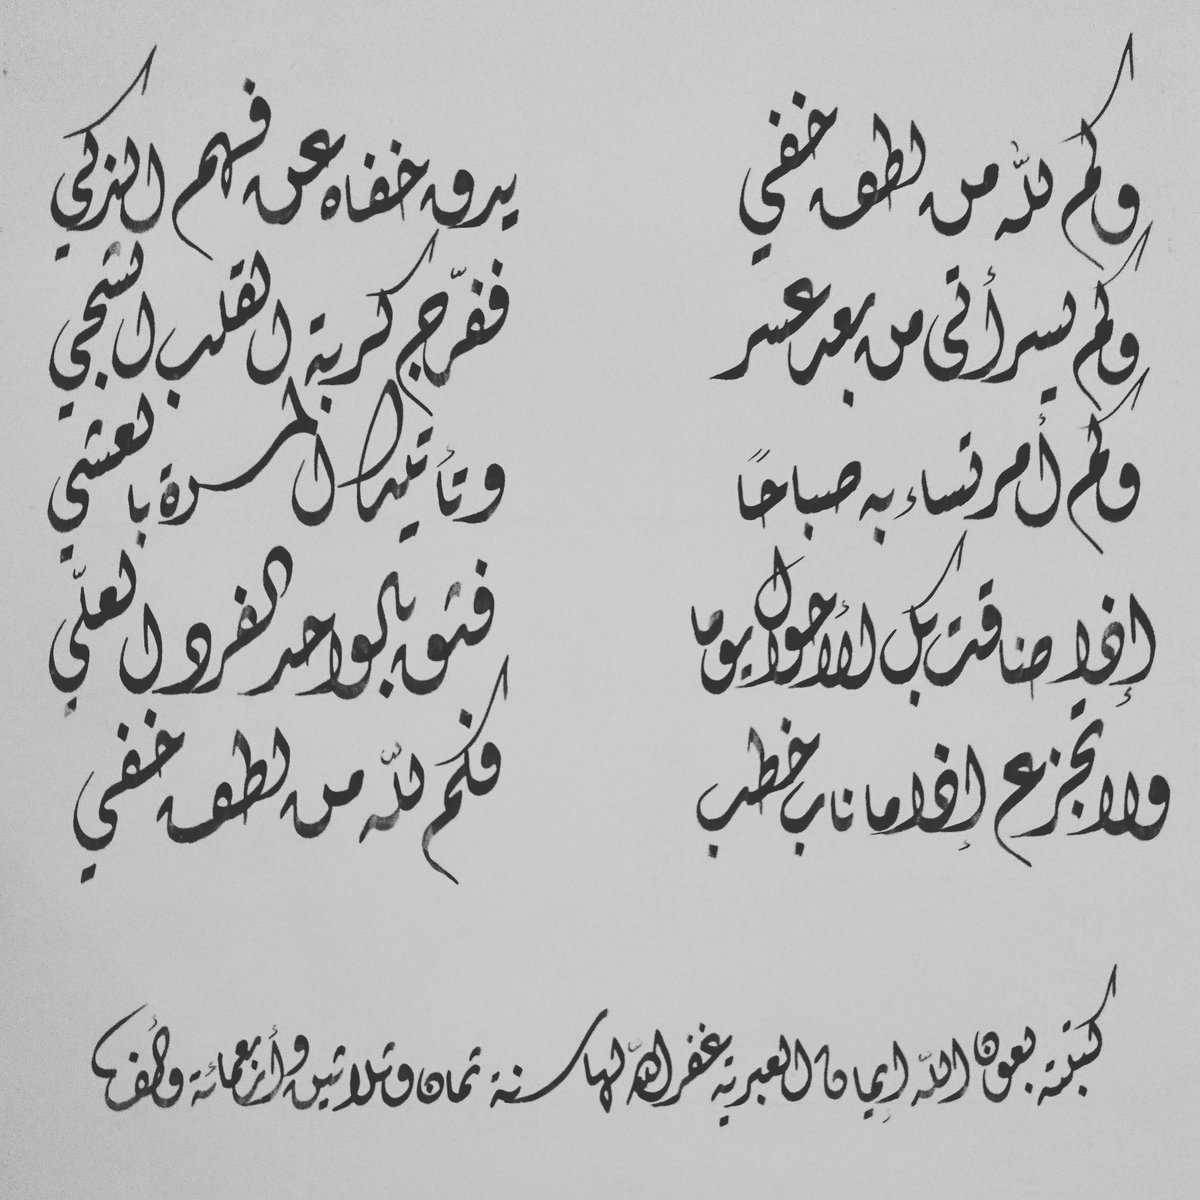 وكم لله من لطف خفي يدق خفاه عن فهم الذكي
وكم يسر أتى من بعد عسر ففرّج كربة القلب الشجي
وكم أمر تساء به صباحًا وتأتيك المسرة بالعشي
إذا ضاقت بك الأحوال يوما فثق بالواحد الفرد العلّي
ولا تجزع إذا ما ناب خطب فكم للّه من لطف خفي
كتبته بعون اللّه إيمان العبرية غفر اللّه لها سنة ثمان وثلاثين وأربعمائة وألف